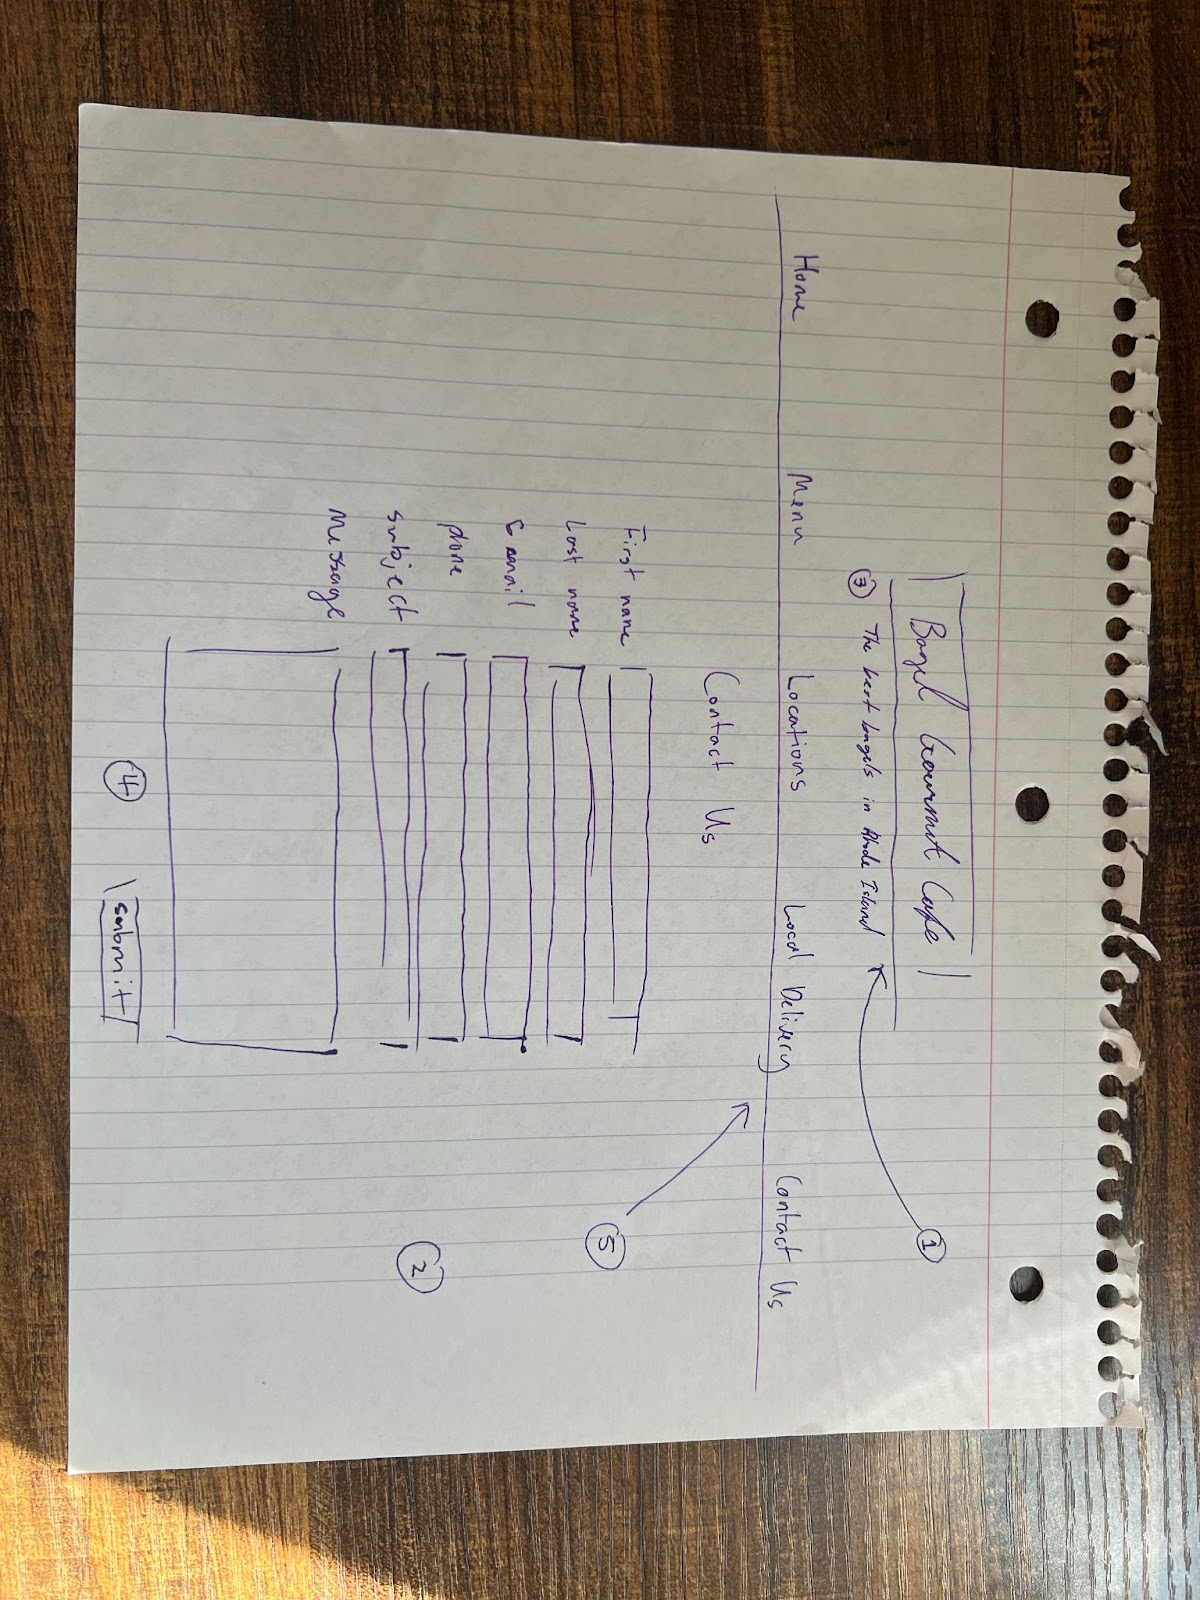 Bagel Gourmet Cafe
1
3 The best bagels in Rhode Island
Home Menu Locations Local Delivery Contact Us
Contact Us
First name
5
Last name
email
phone
2
subject
Message
4
submit